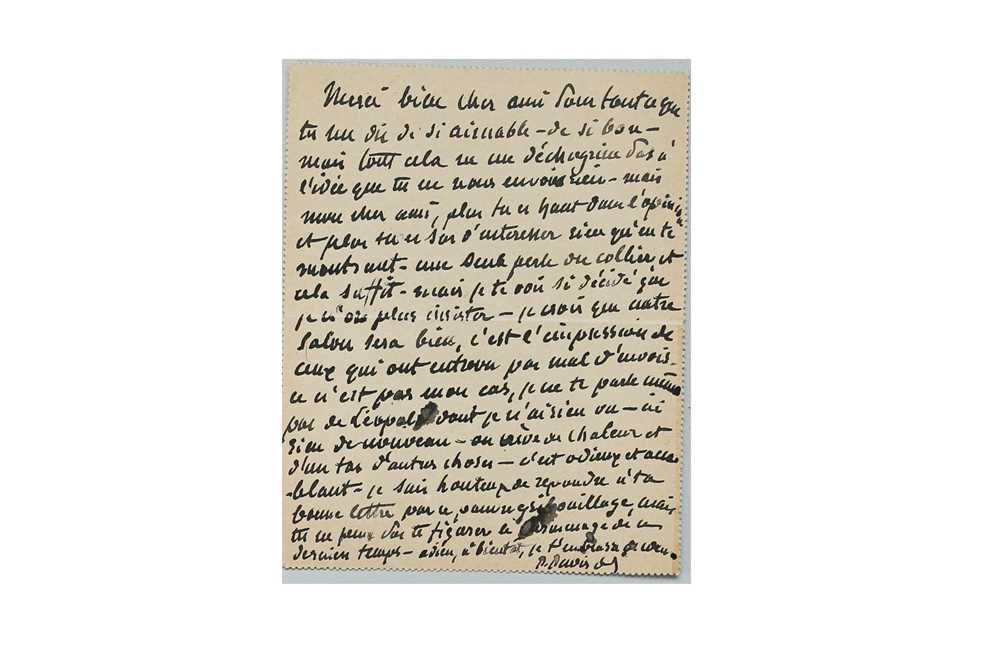 Merci bien cher ami pour tout ce que
tu me dis de si aimable - de si bon -
mais tout cela ne me déchagrine pas à
l'idée que tu ne nous envois rien - mais
mon cher ami, plus tu es haut dans l'opinion
et plus tu es sûr d'interesser rien qu'en te
montrant - une seule perle du collier et
cela suffit - mais je te vois si décidé que
je n'ose plus insister - je crois que notre
Salon sera bien, c'est l'impression de
ceux qui ont entrevu pas mal d'envois -
ce n'est pas mon cas, je ne te parle même
pas de Léopold dont je n'ai rien vu - ni
rien de nouveau - on crève de chaleur et
d'un tas d'autres choses - c'est odieux et acca
-blant - je suis honteux de repondre à ta
bonne lettre par ce pauvre gribouillage, mais
tu ne peux pas te figurer le surmenage de ces
derniers temps - adieu, à bientot, je t'embrasse
P. Puvis de Ch